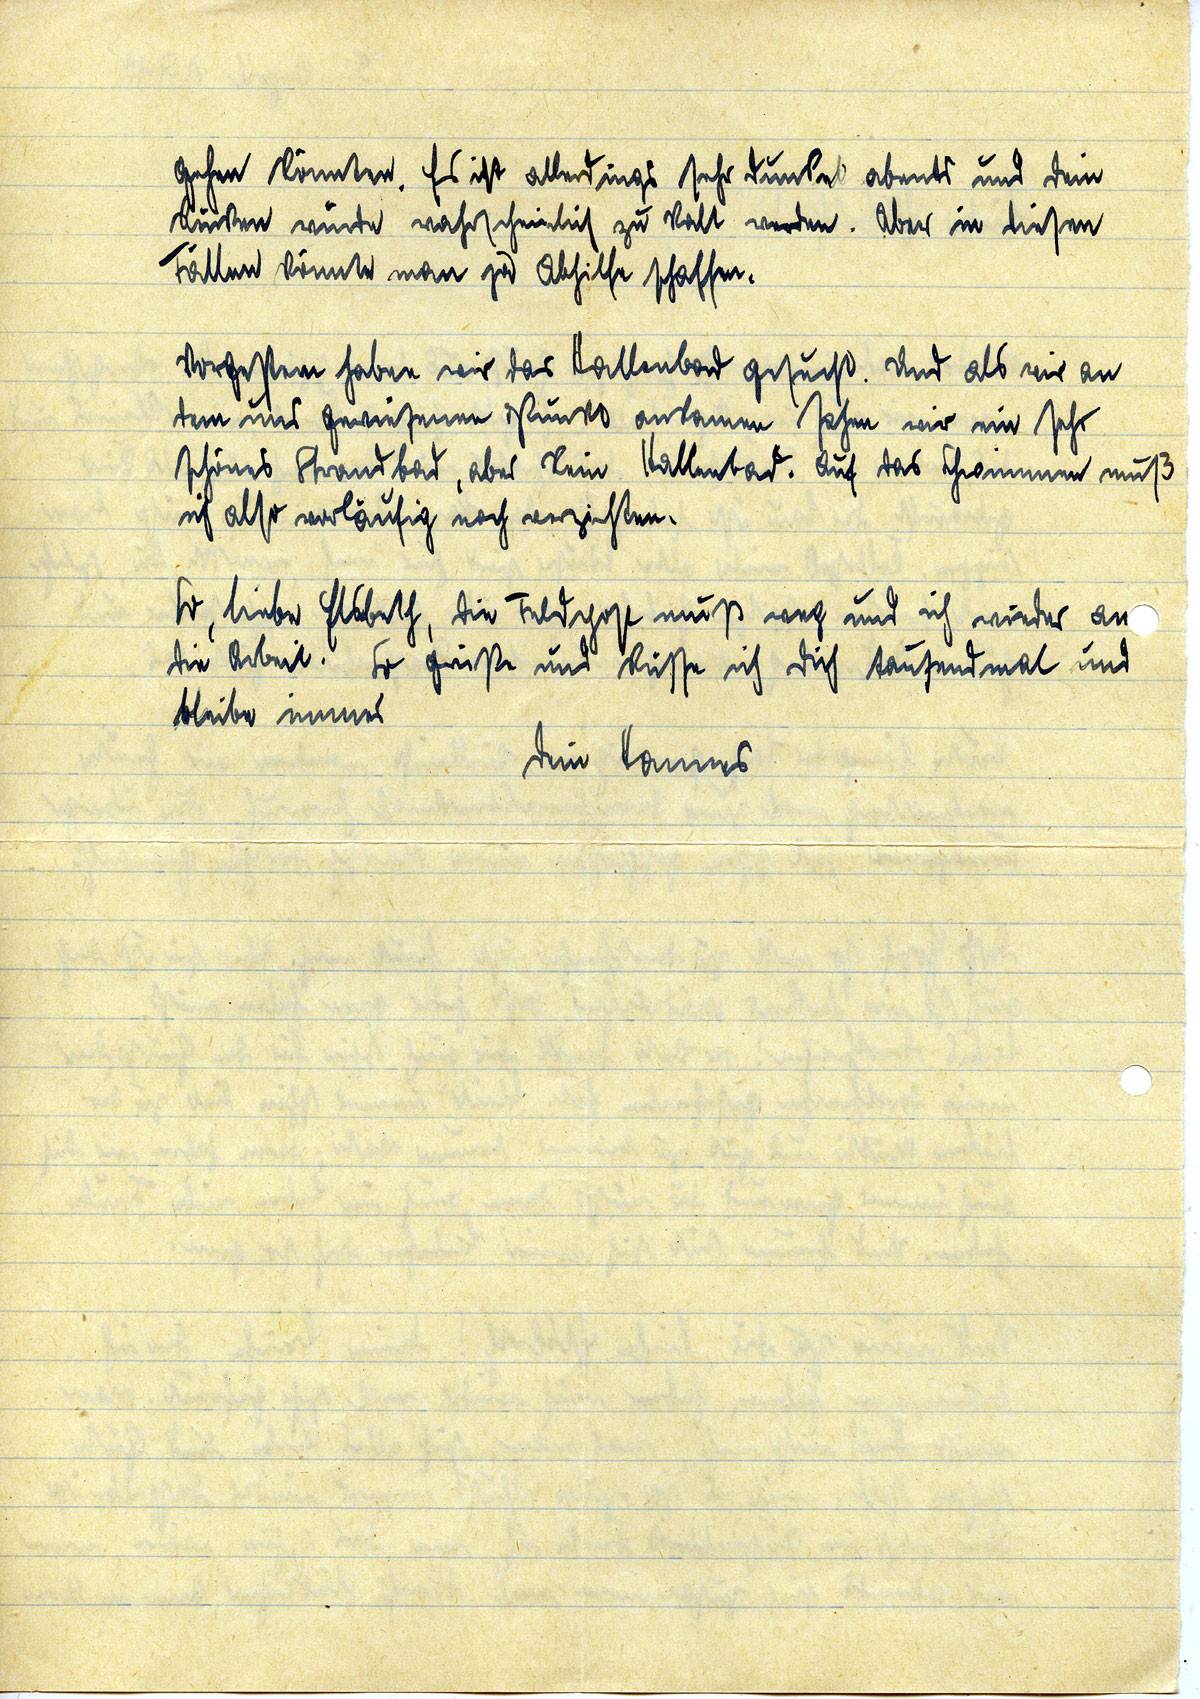 gehen könnten. Es ist allerdings sehr dunkel abends und dein
Rücken würde wahrscheinlich zu kalt werden. Aber in diesen
Fällen könnte man ja Abhilfe schaffen.
Vorgestern haben wir das Hallenbad gesucht. Und als wir an
dem uns gewiesenen Punkt ankamen sahen wir ein sehr
schönes Strandbad, aber kein Hallenbad. Auf das Schwimmen muß
ich also vorläufig noch verzichten.
So, liebe Elsbeth, die Feldpost muß weg und ich wieder an
die Arbeit. So grüße und küsse ich dich tausendmal und
bleibe immer
dein Hannes